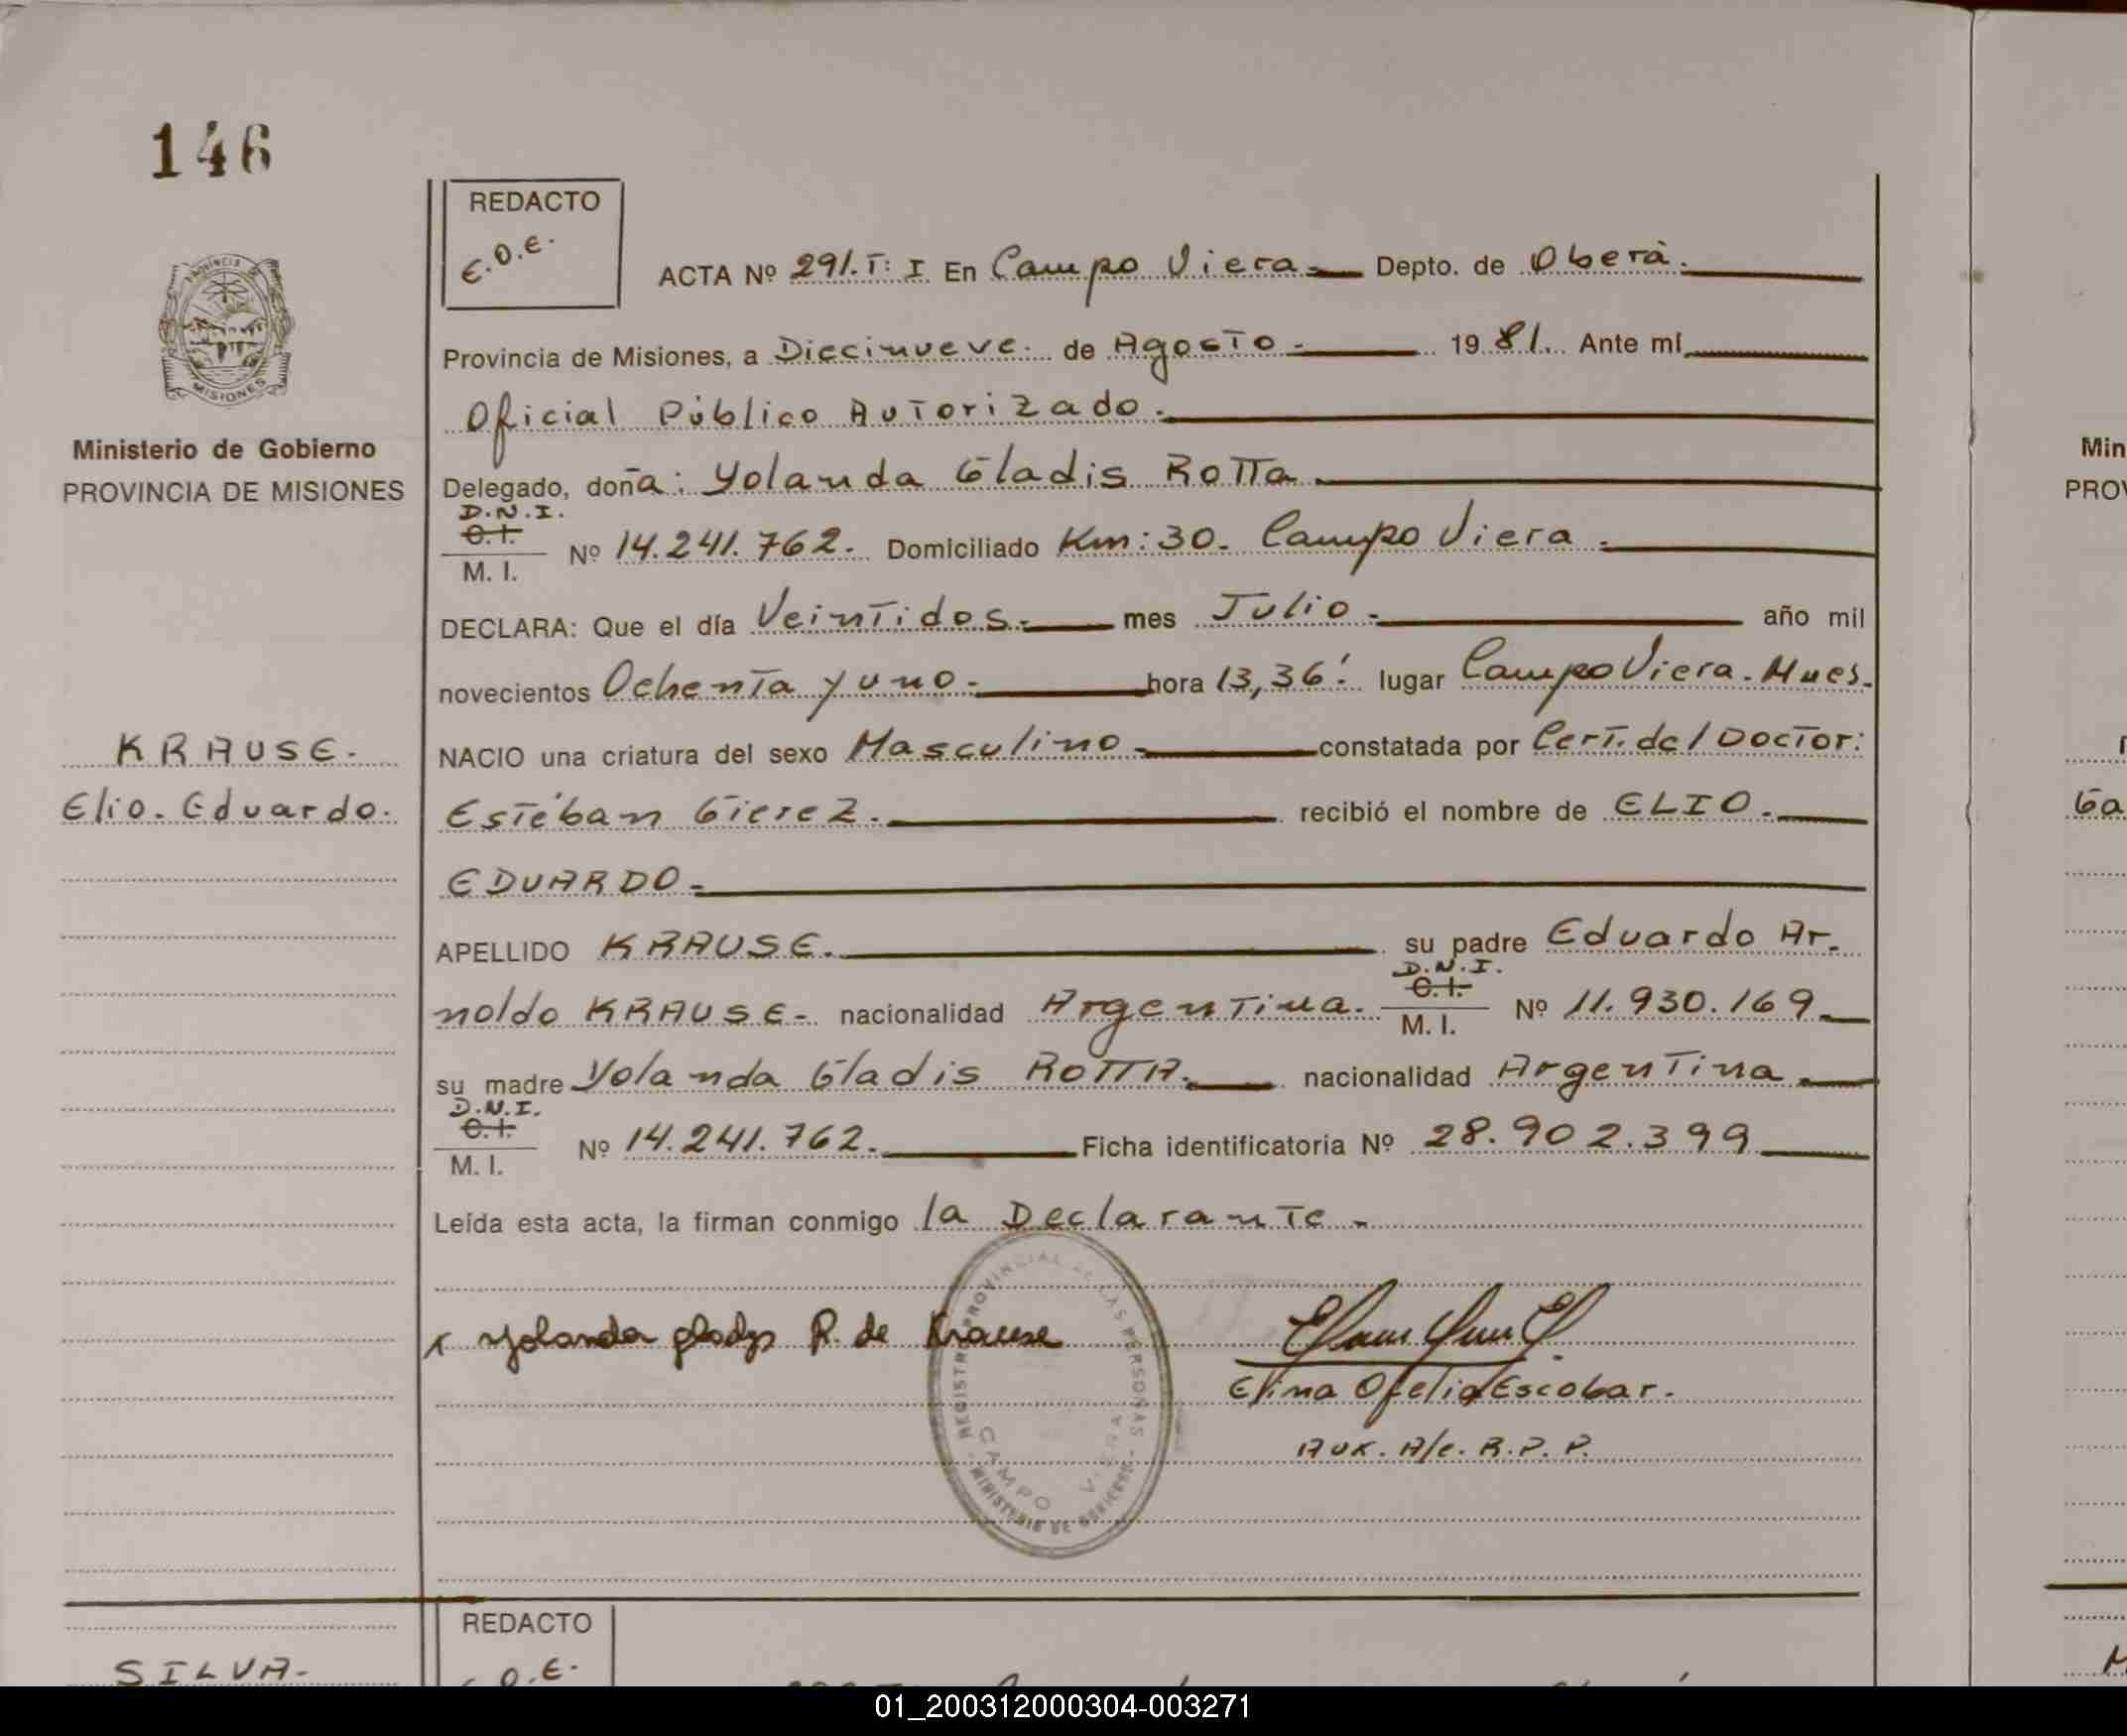 146
REDACTO
E.O.E.
ACTA Nº 291. T: I En Campo Viera Depto. de Oberá.
Provincia de Misiones, a Diecinueve de Agosto 1981. Ante mí
Oficial Público Autorizado.
PROVINCIA DE
MISIONES
Ministerio de Gobierno
PROVINCIA DE MISIONES
Delegado, doña: Yolanda Gladis ROTTA
D.N.I.
C.I.
M. I.
Nº 14.241.762. Domiciliado Km: 30. Campo Viera.
DECLARA: Que el día Veintidos mes Julio. año mil
novecientos Ochenta y uno. hora 13,36' lugar Campo Viera. Mnes.
KRAUSE.
Elio. Eduardo.
NACIO una criatura del sexo Masculino constatada por Cert. del Doctor:
Estéban recibió el nombre de ELIO.
EDUARDO.
APELLIDO KRAUSE. su padre Eduardo Ar-
D.N.I.
C.I.
M. I.
noldo KRAUSE- nacionalidad Argentina. Nº 11.930.169.
su madre Yolanda Gladis ROTTA. nacionalidad Argentina
D.N.I.
C.I.
M. I.
Nº 14.241.762. Ficha identificatoria Nº 28.902.399
Leída esta acta, la firman conmigo la Declarante
x Yolanda gladys R. de Krause
REGISTRO PROVINCIAL DE LAS PERSONAS
CAMPO VIERA
MINISTERIO DE GOBIERNO
Elina Ofelia Escobar.
Aux. A/c. R.P.P.
REDACTO
O.E.
SILVA.
Min
PROV
Ga
01_200312000304-003271